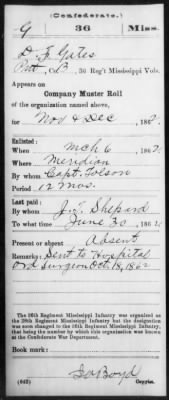 (Confederate.)
G 36 Miss.
D. F. Gates
Pvt, Co. B, 36 Reg't Mississippi Vols.
Appears on
Company Muster Roll
of the organization named above,
for Nov & Dec, 186
Enlisted:
When Mch 6, 1862
Where Meridian
By whom Capt. Tolson
Period 12 mos.
Last paid:
By whom J. T. Shepard
To what time June 30, 1862
Present or absent Absent
Remarks: Sent to Hospital
ord Surgeon Oct. 18, 1862
The 36th Regiment Mississippi Infantry was organized as
the 28th Regiment Mississippi Infantry but the designation
was soon changed to the 36th Regiment Mississippi Infantry,
that being the number by which this organization was known
at the Confederate War Department.
Book mark:
(642) Boyd
Copyist.